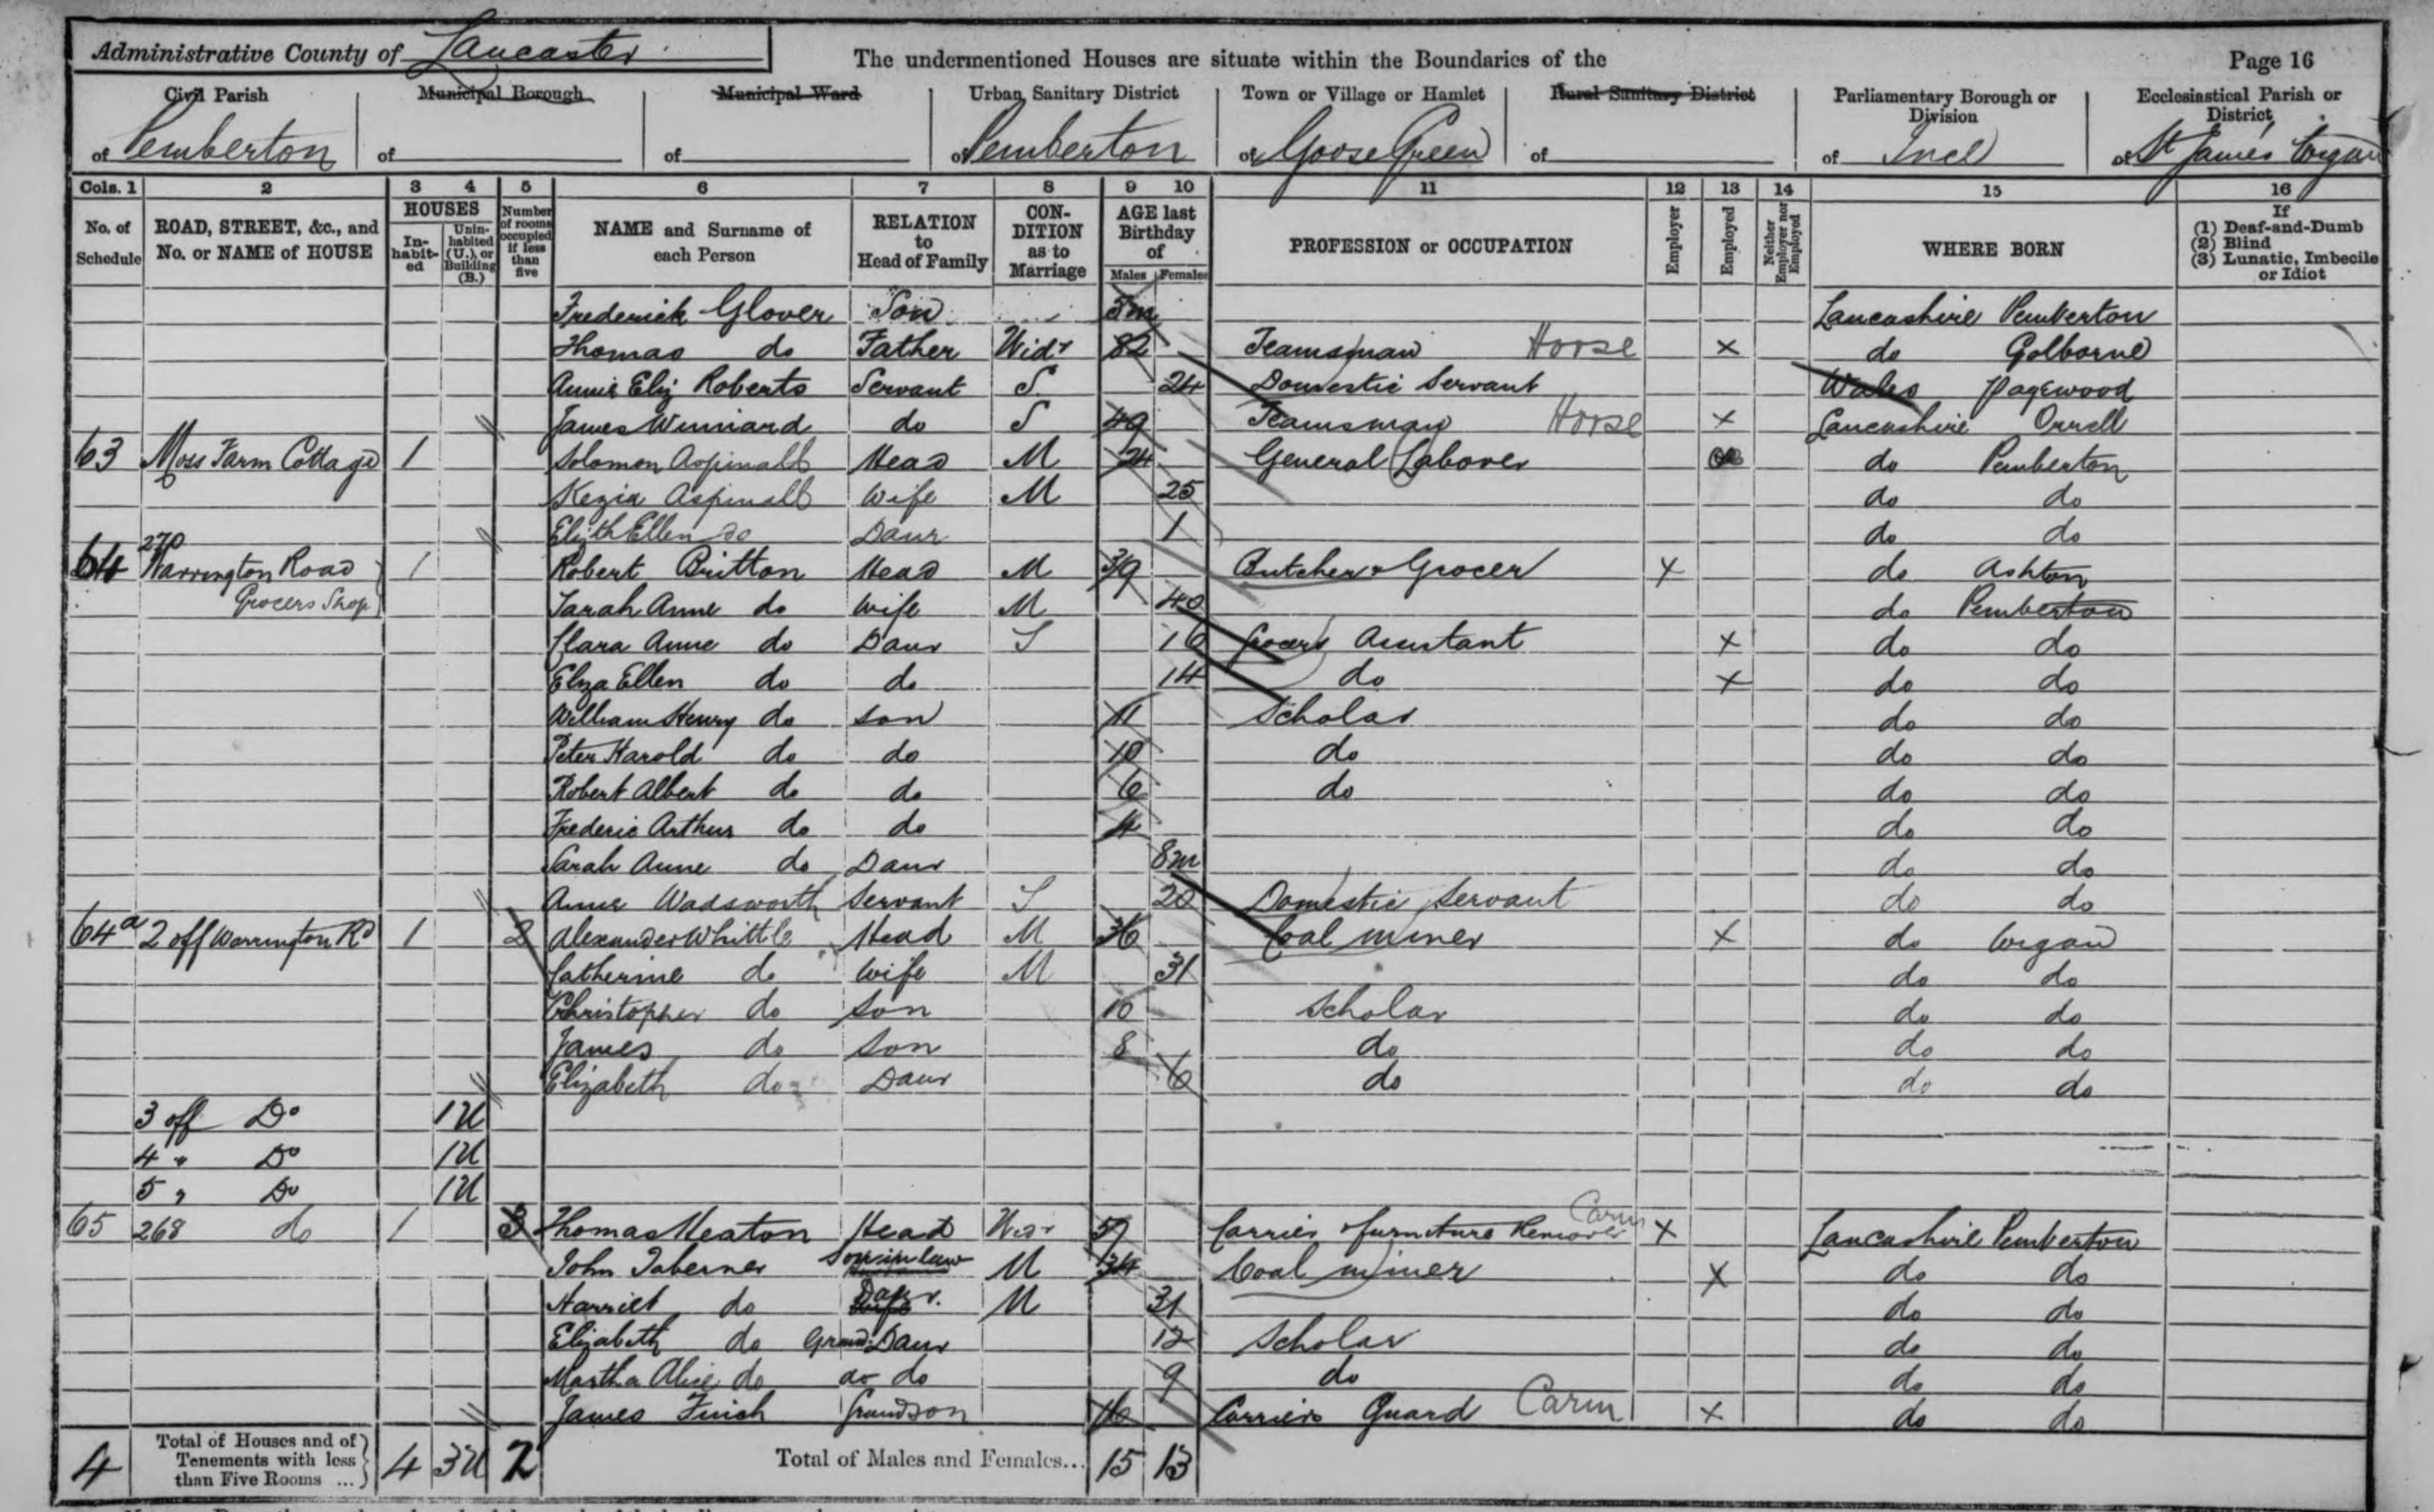 Administrative County of Lancaster The undermentioned Houses are situate within the Boundaries of the Page 16
Civil Parish Municipal Borough Municipal Ward Urban Sanitary District Town or Village or Hamlet Rural Sanitary District Parliamentary Borough or Division Ecclesiastical Parish or District
of Pemberton of of of Pemberton of Goose Green of of Ince of St James Wigan
Cols. 1 2 3 4 5 6 7 8 9 10 11 12 13 14 15 16
No. of Schedule ROAD, STREET, &c., and No. or NAME of HOUSE HOUSES In-habit-ed Unin-habited (U.), or Building (B.) Number of rooms occupied if less than five NAME and Surname of each Person RELATION to Head of Family CON-DITION as to Marriage AGE last Birthday of Males Females PROFESSION or OCCUPATION Employer Employed Neither Employer nor Employed WHERE BORN If (1) Deaf-and-Dumb (2) Blind (3) Lunatic, Imbecile or Idiot
Frederick Glover Son 5m Lancashire Pemberton
Thomas do Father Widr 82 Teamsman Horse X do Golborne
Annie Eliz Roberts Servant S 24 Domestic Servant Wales
James Winnard do S 49 Teamsman Horse X Lancashire Orrell
63 Moss Farm Cottage 1 Solomon Aspinall Head M 24 General Labover do Pemberton
Kezia Aspinall Wife M 25 do do
Elizth Ellen do Daur 1 do do
64 270 Warrington Road 1 Robert Britton Head M 39 Butcher & Grocer X do Ashton
Grocers Shop Sarah Anne do Wife M 40 do Pemberton
Clara Anne do Daur S 16 Grocers Assistant X do do
Eliza Ellen do do 14 do X do do
William Henry do Son 11 Scholar do do
Peter Harold do do 10 do do do
Robert Albert do do 6 do do do
Frederic Arthur do do 4 do do
Sarah Anne do Daur 8m do do
Annie Wadsworth Servant S 20 Domestic Servant do do
64a 2 off Warrington Rd 1 2 Alexander Whittle Head M 36 Coal miner X do Wigan
Catherine do Wife M 31 do do
Christopher do Son 10 Scholar do do
James do Son 8 do do do
Elizabeth do Daur 6 do do do
3 off Do 1U
4 " Do 1U
5 " Do 1U
65 268 do 1 3 Thomas Heaton Head Widr 57 Carrier & furniture Remover Carm X Lancashire Pemberton
John Taberner Son in law M 34 Coal miner X do do
Harriet do Daur. M 31 do do
Elizabeth do Grand Daur 12 Scholar do do
Martha Alice do do do 9 do do do
James Finch Grandson 16 Carriers Guard Carm X do do
4 Total of Houses and of Tenements with less than Five Rooms ... 4 3U 2 Total of Males and Females... 15 13